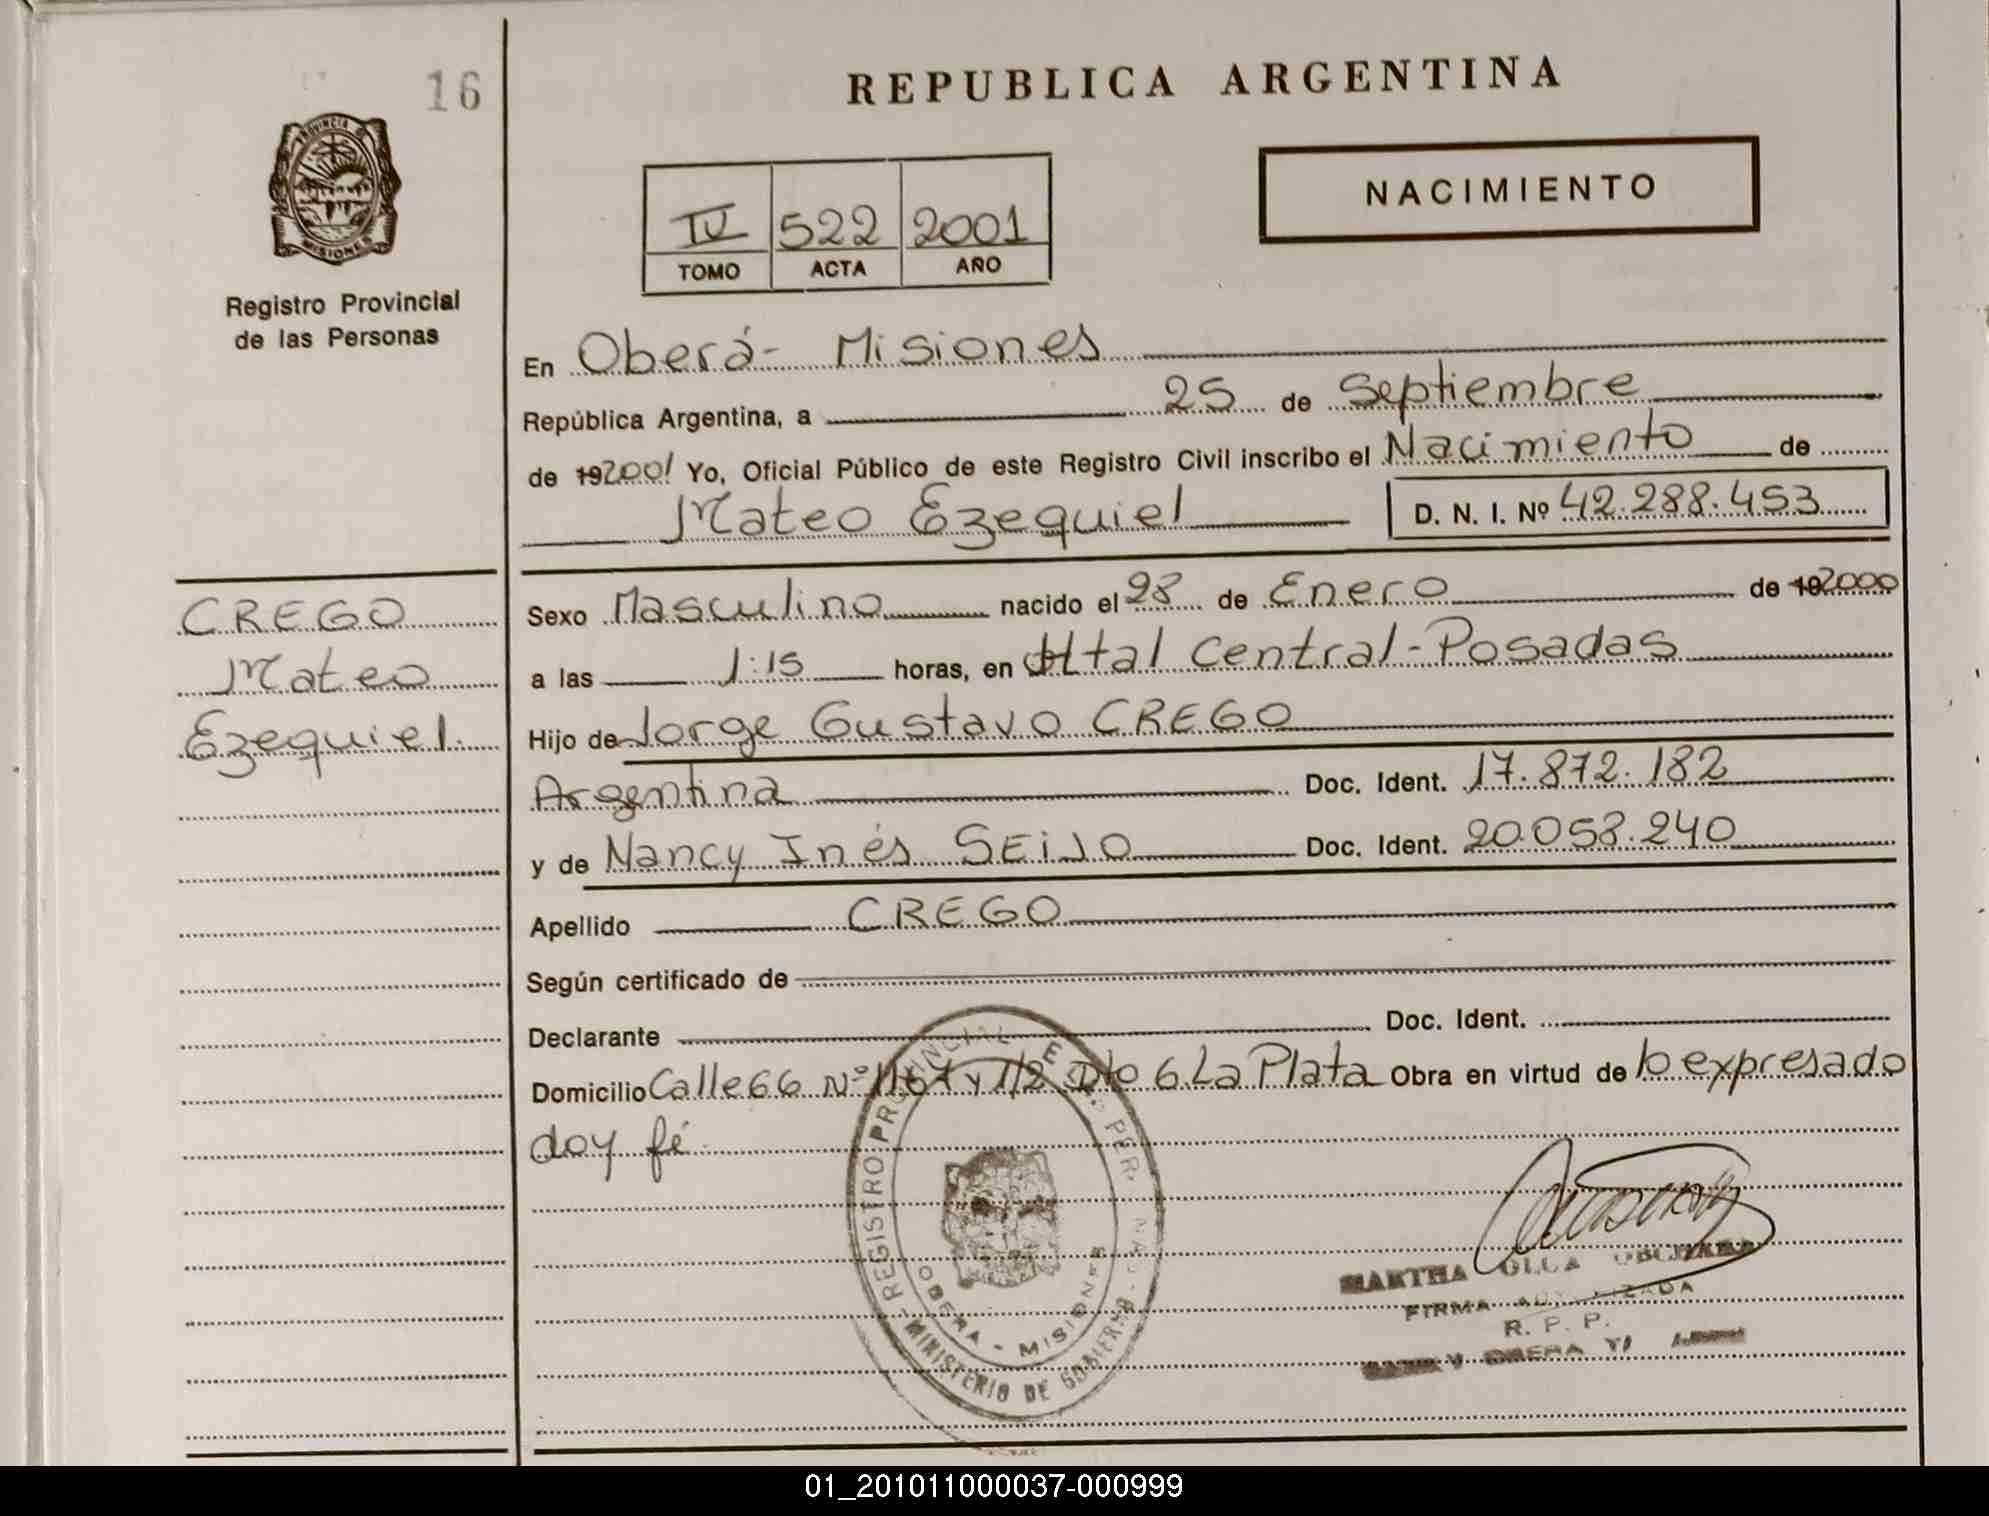 16
REPUBLICA ARGENTINA
PROVINCIA DE
MISIONES
Registro Provincial
de las Personas
NACIMIENTO
IV 522 2001
TOMO ACTA AÑO
En Oberá - Misiones
República Argentina, a 25 de Septiembre
de 192001 Yo, Oficial Público de este Registro Civil inscribo el Nacimiento de
Mateo Ezequiel D. N. I. Nº 42.288.453
CREGO
Mateo
Ezequiel.
Sexo Masculino nacido el 28 de Enero de 192000
a las 1:15 horas, en Htal Central - Posadas
Hijo de Jorge Gustavo CREGO
Argentina Doc. Ident. 17.872.182
y de Nancy Inés SEIJO Doc. Ident. 20.058.240
Apellido CREGO
Según certificado de
Declarante Doc. Ident.
Domicilio Calle 66 Nº 1167 y 1/2 Dto 6 La Plata Obra en virtud de lo expresado
doy fé.
REGISTRO PROVINCIAL
OBERA - MISIONES
MINISTERIO DE GOBIERNO
MARTHA OLGA
FIRMA AUTORIZADA
R. P. P.
OBERA
01_201011000037-000999